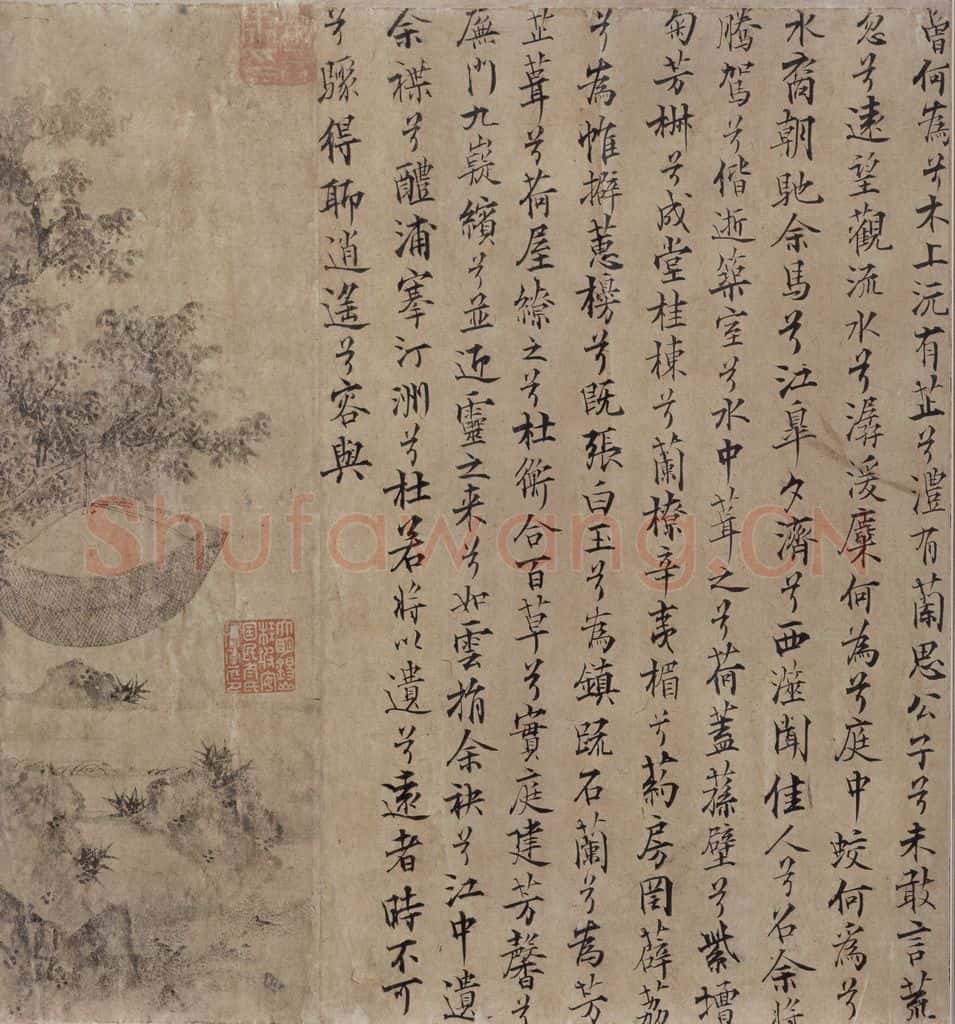 罾何為兮木上沅有芷兮澧有蘭思公子兮未敢言荒
忽兮遠望觀流水兮潺湲麋何為兮庭中蛟何為兮
水裔朝馳余馬兮江皋夕濟兮西澨聞佳人兮召余將
騰駕兮偕逝築室兮水中葺之兮荷蓋蓀壁兮紫壇
匊芳椒兮成堂桂棟兮蘭橑辛夷楣兮葯房罔薜荔
兮為帷擗蕙櫋兮既張白玉兮為鎮疏石蘭兮為芳
芷葺兮荷屋繚之兮杜衡合百草兮實庭建芳馨兮
廡門九嶷繽兮並迎靈之来兮如雲捐余袂兮江中遺
余褋兮醴浦搴汀洲兮杜若將以遺兮遠者時不可
兮驟得聊逍遙兮容與
Shufawang.CN